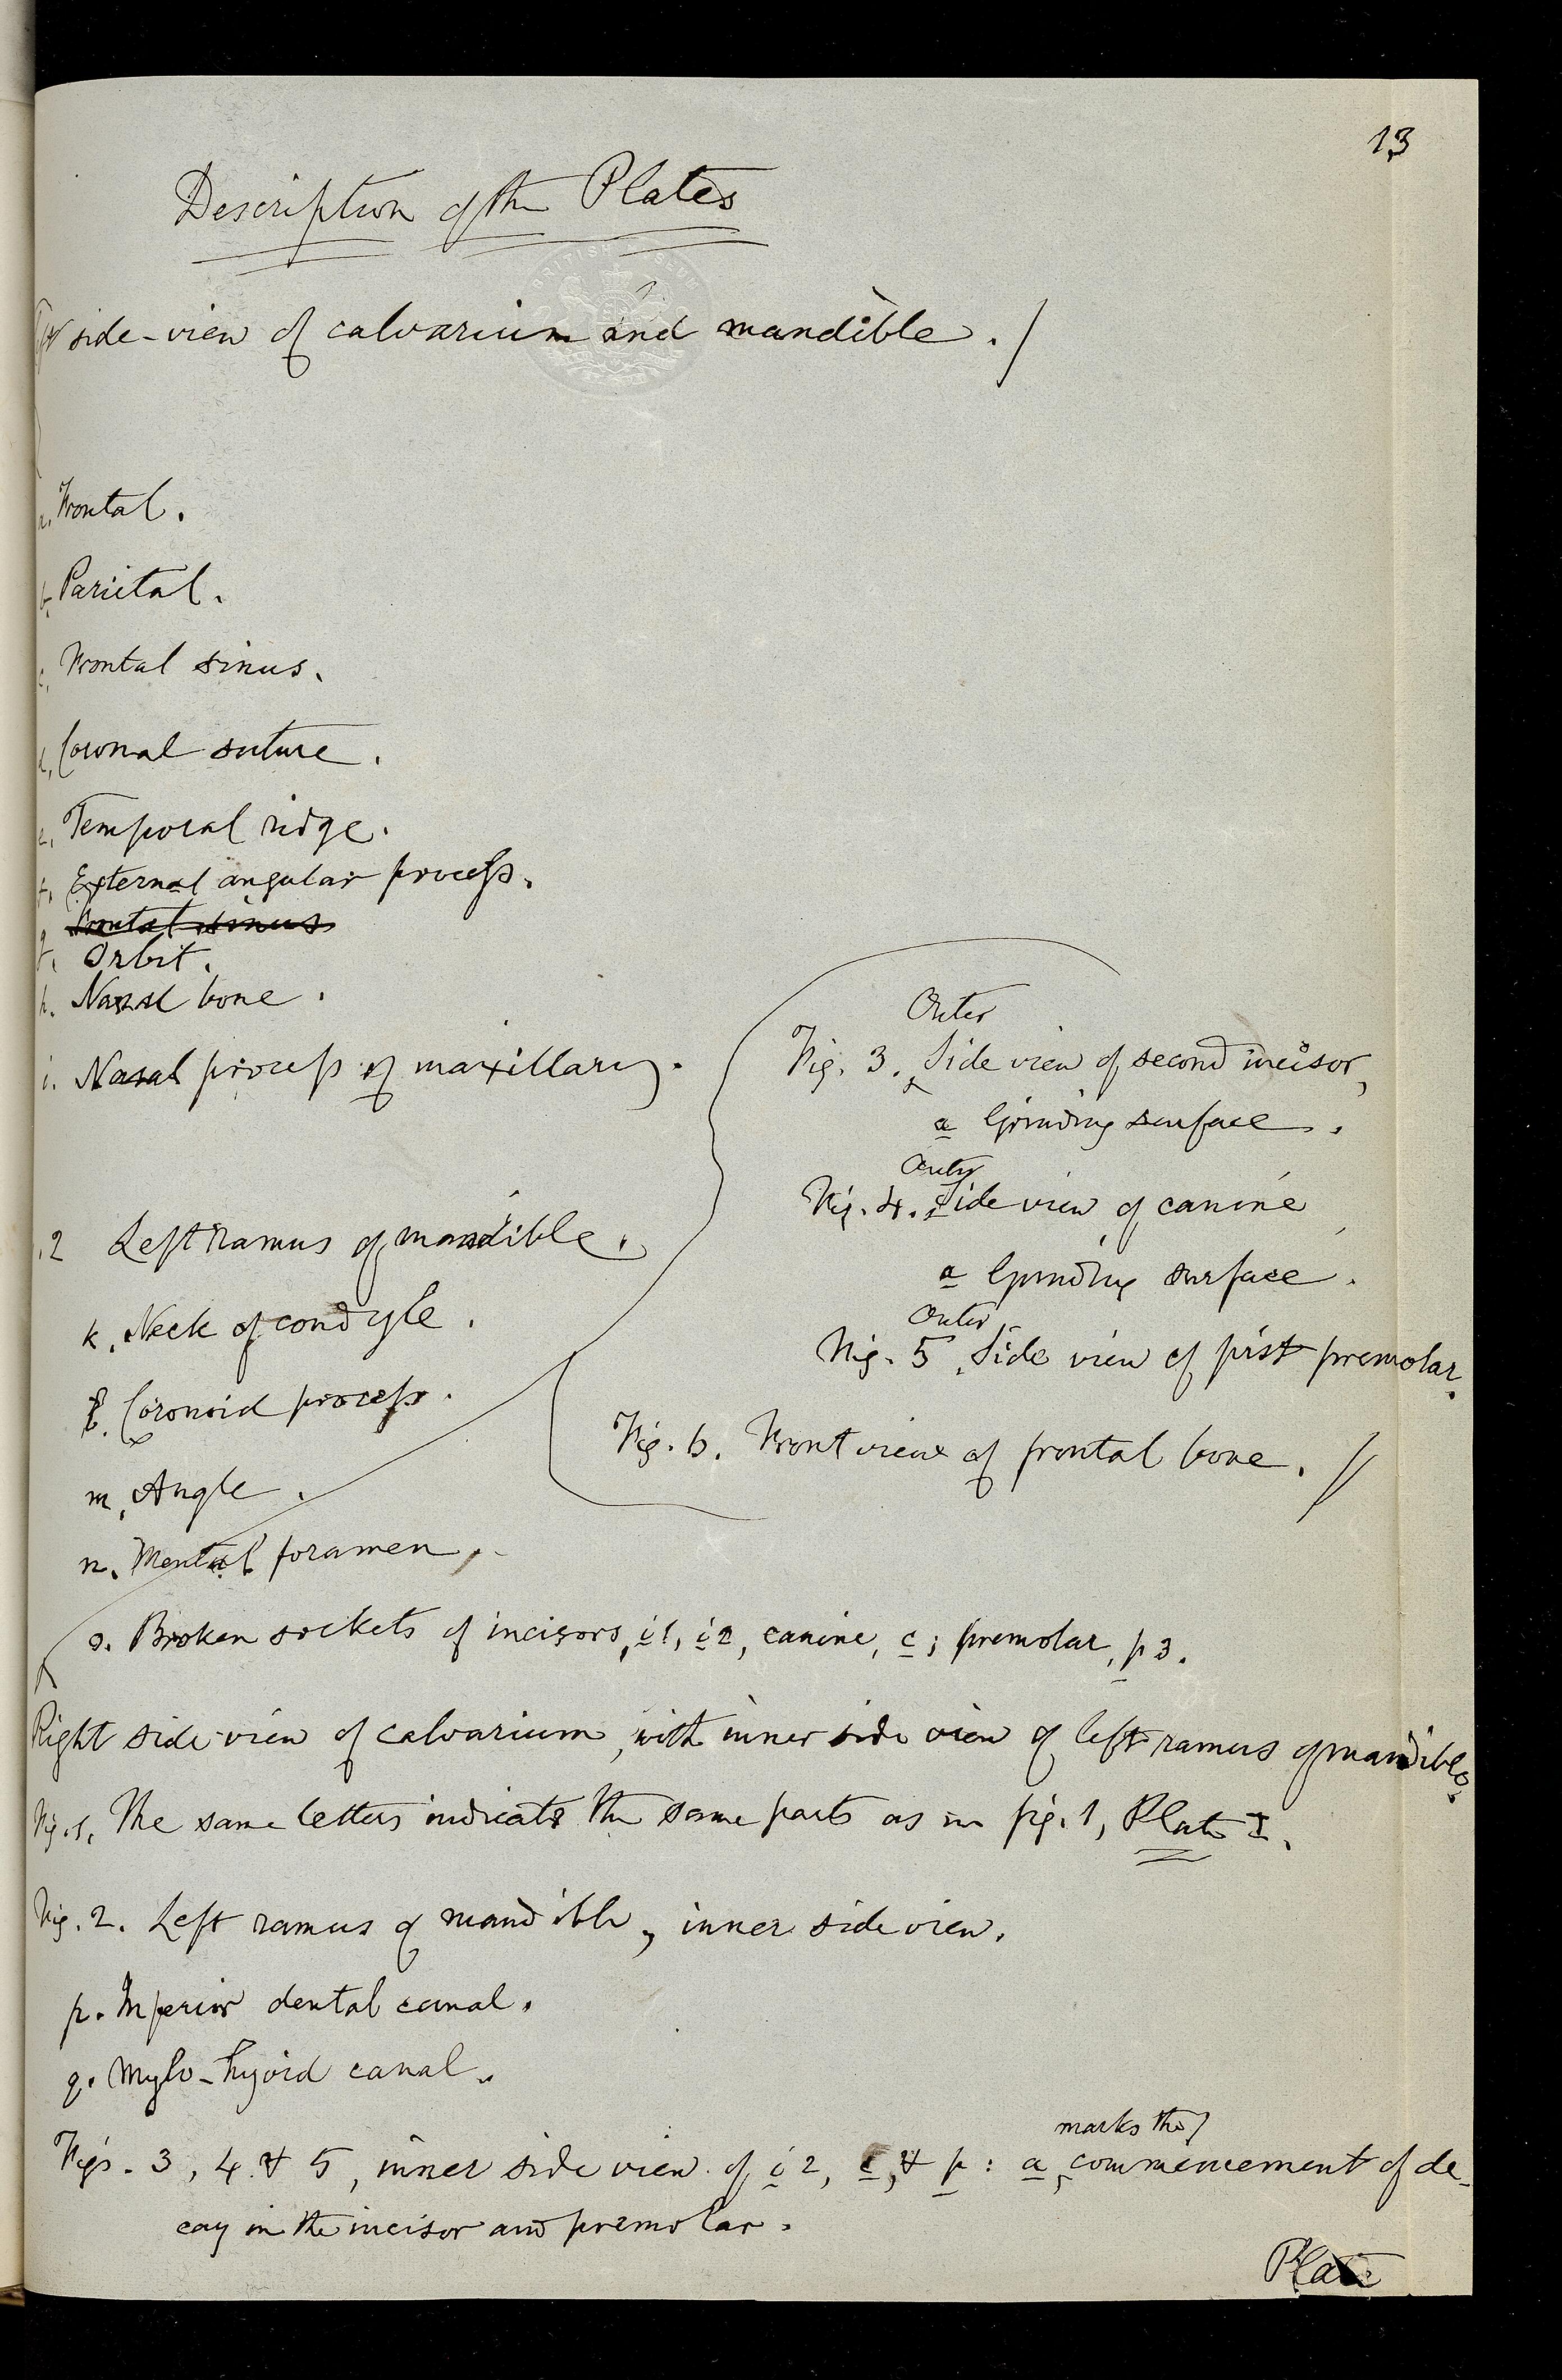 13
Description of the Plates
side-view of calvarium and mandible.
a. Frontal.
b. Parietal.
c. Frontal sinus.
d. Coronal suture.
e. Temporal ridge.
f. External angular process.
Frontal sinus
g. Orbit.
h. Nasal bone.
i. Nasal process of maxillary.
.2 Left ramus of mandible.
k. Neck of condyle.
l. Coronoid process.
m. Angle.
n. Mental foramen.
o. Broken sockets of incisors, i1, i2, canine, c; premolar, p3.
Outer
Fig. 3. Side view of second incisor,
a Grinding surface.
Outer
Fig. 4. Side view of canine
a Grinding surface.
Outer
Fig. 5. Side view of first premolar.
Fig. 6. Front view of frontal bone.
Right side-view of calvarium, with inner side view of left ramus of mandible.
Fig. 1. The same letters indicate the same parts as in fig. 1, Plate I.
Fig. 2. Left ramus of mandible, inner side view.
p. Inferior dental canal.
q. Mylo-hyoid canal.
marks the
Figs. 3, 4 & 5, inner side view of i2, c, & p: a, commencement of de-
cay in the incisor and premolar.
Plate
BRITISH MUSEUM